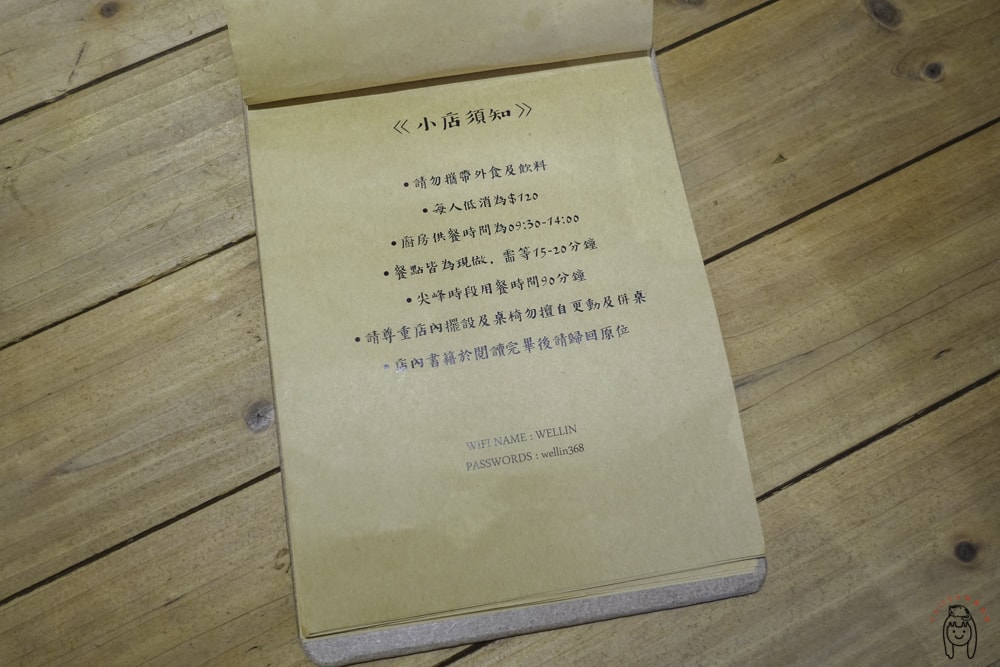 《小店須知》
•請勿攜帶外食及飲料
•每人低消為$120
•廚房供餐時間為09:30-14:00
•餐點皆為現做,需等15-20分鐘
•尖峰時段用餐時間90分鐘
•請尊重店內擺設及桌椅勿擅自更動及併桌
•店內書籍於閱讀完畢後請歸回原位
WIFI NAME : WELLIN
PASSWORDS : wellin368